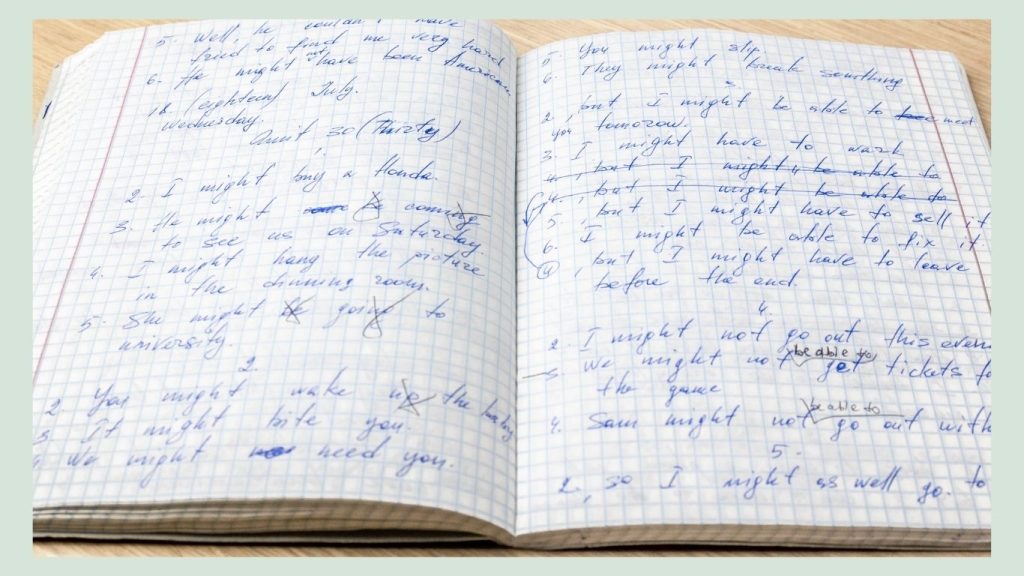 5. Well, he couldn't have
tried to find me very hard
6. He might not have been American
18 (eighteen) July.
Wednesday.
Unit 30 (Thirty)
2. I might buy a Honda.
3. He might be coming
to see us on Saturday.
4. I might hang the picture
in the dinning room.
5. She might be going to
university.
2.
2 You might wake up the baby
3 It might bite you.
We might need you.
5. You might slip
6. They might break something
3.
2 , but I might be able to meet
you tomorrow.
3. I might have to work
4. , but I might be able to
4. , but I might be able to
5 , but I might have to sell it
6. I might be able to fix it.
4 , but I might have to leave
before the end.
4.
2. I might not go out this even
be able to
3 We might not get tickets fo
the game
be able to
4. Sam might not go out with
5.
2. , so I might as well go to